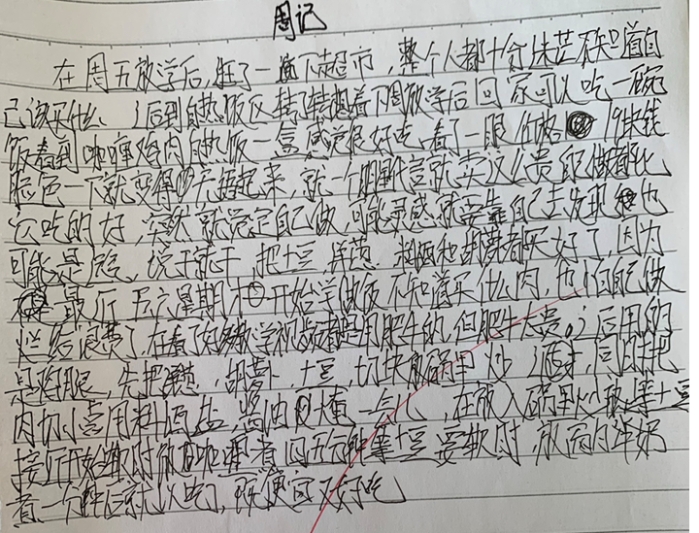 周记
在周五放学后,逛了一下超市,整个人都十分迷茫不知道自
己该买什么 后到自热饭区转了转想着下周放学后回家可以吃一碗
饭看到咖喱鸡肉自热饭一盒感觉很好吃,看了一眼价格 19块钱
脸色一下就变得无语起来,就一个明星代言就卖这么贵 做都比
它吃的好,突然就觉定自己做,可能灵感就要靠自己去发现 也
可能是 说干就干 把土豆,洋葱 和胡萝卜都买好了,因为
是最后 五六星期才开始学做饭不知道买什么肉,也怕自己做
烂给浪费了,在看了好多教学视频都是用肥牛的,但肥牛太贵。后用的
是鸡腿,先把洋葱,胡萝卜,土豆,切块放锅里炒 同时把
肉切小点用料酒,盐,酱油 腌一会儿,在放入锅里 土豆
接近开始 时放咖喱煮四五分钟等土豆要软时,放 肉
煮一个 就可以吃了,既便宜又好吃